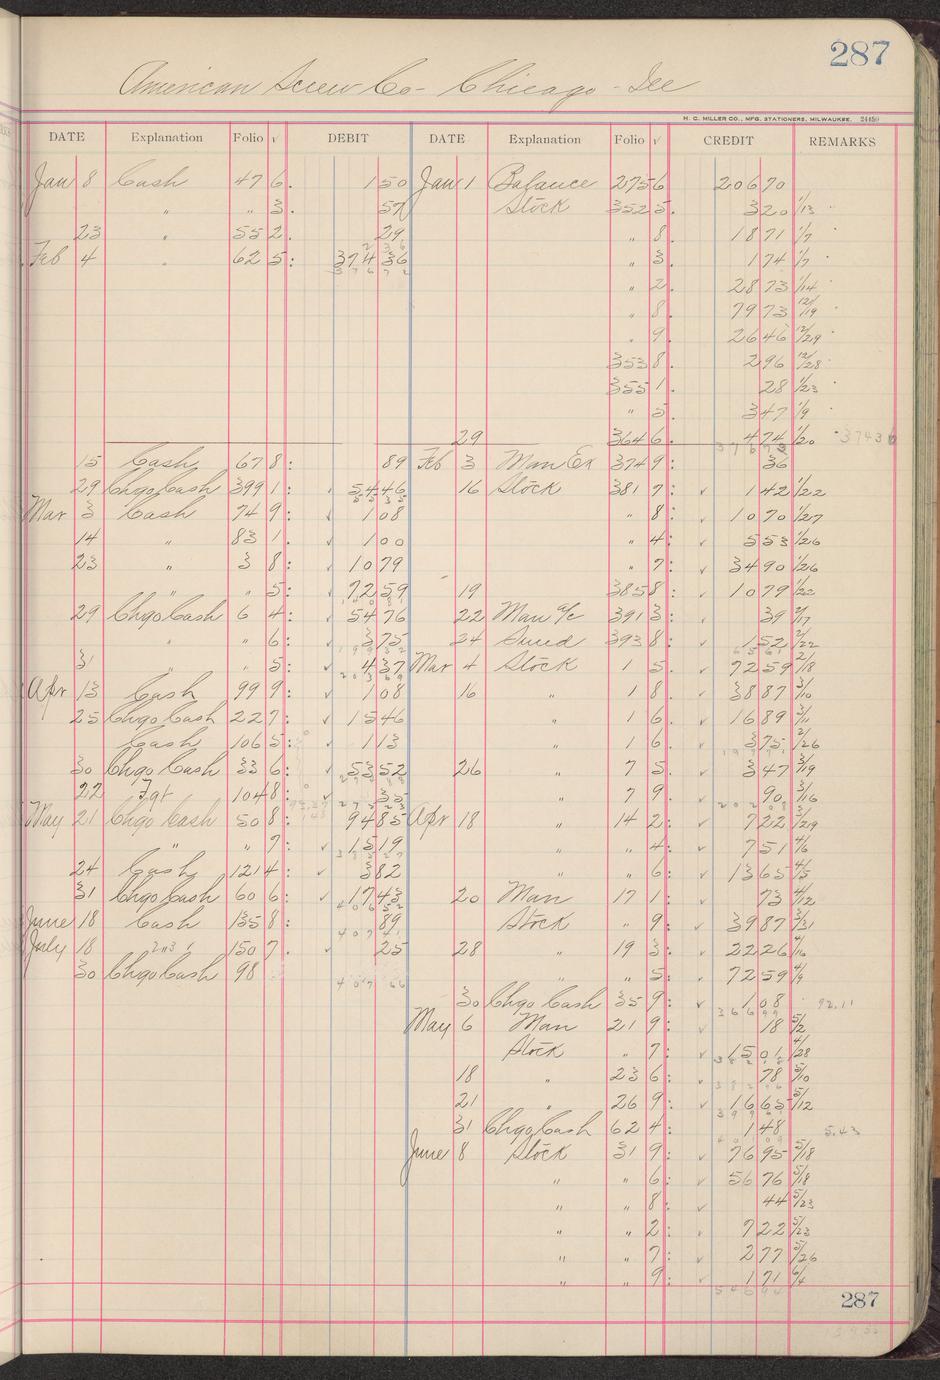 287
American Screw Co - Chicago - Ill
H. C. MILLER CO., MFG. STATIONERS, MILWAUKEE. 24450
DATE Explanation Folio √ DEBIT DATE Explanation Folio √ CREDIT REMARKS
Jan 8 Cash 47 6. 1 50 Jan 1 Balance 275 6 206 70
" " 3. 57 Stock 352 5. 3 20 1/13
23 " 55 2. 29 " 8. 18 71 1/7
Feb 4 " 62 5: 374 36 " 3. 1 74 1/7
" 2. 28 73 1/14
" 8. 79 73 12/19
" 9. 26 46 12/29
353 8 2 96 12/28
355 1. 28 1/23
" 5. 3 47 1/9
29 364 6. 4 74 1/20 37436
15 Cash 67 8: 89 Feb 3 Man Ex 374 9: 36
29 Chgo Cash 399 1: √ 54 46 16 Stock 381 7: √ 1 42 1/22
Mar 3 Cash 74 9: √ 1 08 " 8: √ 10 70 1/27
14 " 83 1. √ 1 00 " 4: √ 5 53 1/26
23 " 3 8: √ 10 79 " 7: √ 34 90 1/26
" " 5: √ 72 59 19 385 8: √ 10 79 1/22
29 Chgo Cash 6 4: √ 54 76 22 Man a/c 391 3: √ 39 2/17
" " 6: √ 3 75 24 Sund 393 8: √ 1 52 2/22
31 " " 5: √ 4 37 Mar 4 Stock 1 5. √ 72 59 2/18
Apr 13 Cash 99 9: √ 1 08 16 " 1 8. √ 38 87 3/10
25 Chgo Cash 22 7: √ 15 46 " 1 6. √ 16 89 3/11
Cash 106 5: √ 1 13 " 1 6. √ 3 75 2/26
30 Chgo Cash 33 6: √ 53 52 26 " 7 5. √ 3 47 3/19
22 Fgt 104 8: √ 35 " 7 9. √ 90 3/16
May 21 Chgo Cash 50 8: 94 85 Apr 18 " 14 2: √ 7 22 3/29
" " 7: √ 15 19 " " 4: √ 7 51 4/6
24 Cash 121 4: √ 3 82 " " 6: √ 13 65 4/5
31 Chgo Cash 60 6: √ 17 43 20 Man 17 1: √ 73 4/12
June 18 Cash 135 8: 89 Stock " 9: √ 39 87 3/31
July 18 " 150 7. √ 25 28 " 19 3: √ 22 26 4/16
30 Chgo Cash 98 " " 5: √ 72 59 4/9
30 Chgo Cash 35 9: √ 1 08 92.11
May 6 Man 21 9: √ 18 5/2
Stock " 7: √ 15 01 4/28
18 " 23 6: √ 78 5/10
21 " 26 9: √ 16 65 5/12
31 Chgo Cash 62 4: 1 48 5.43
June 8 Stock 31 9: √ 76 95 5/18
" " 6: √ 56 76 5/18
" " 8: √ 44 5/23
" " 2: √ 7 22 5/23
" " 7: √ 2 77 5/26
" " 9: √ 1 71 6/4
287